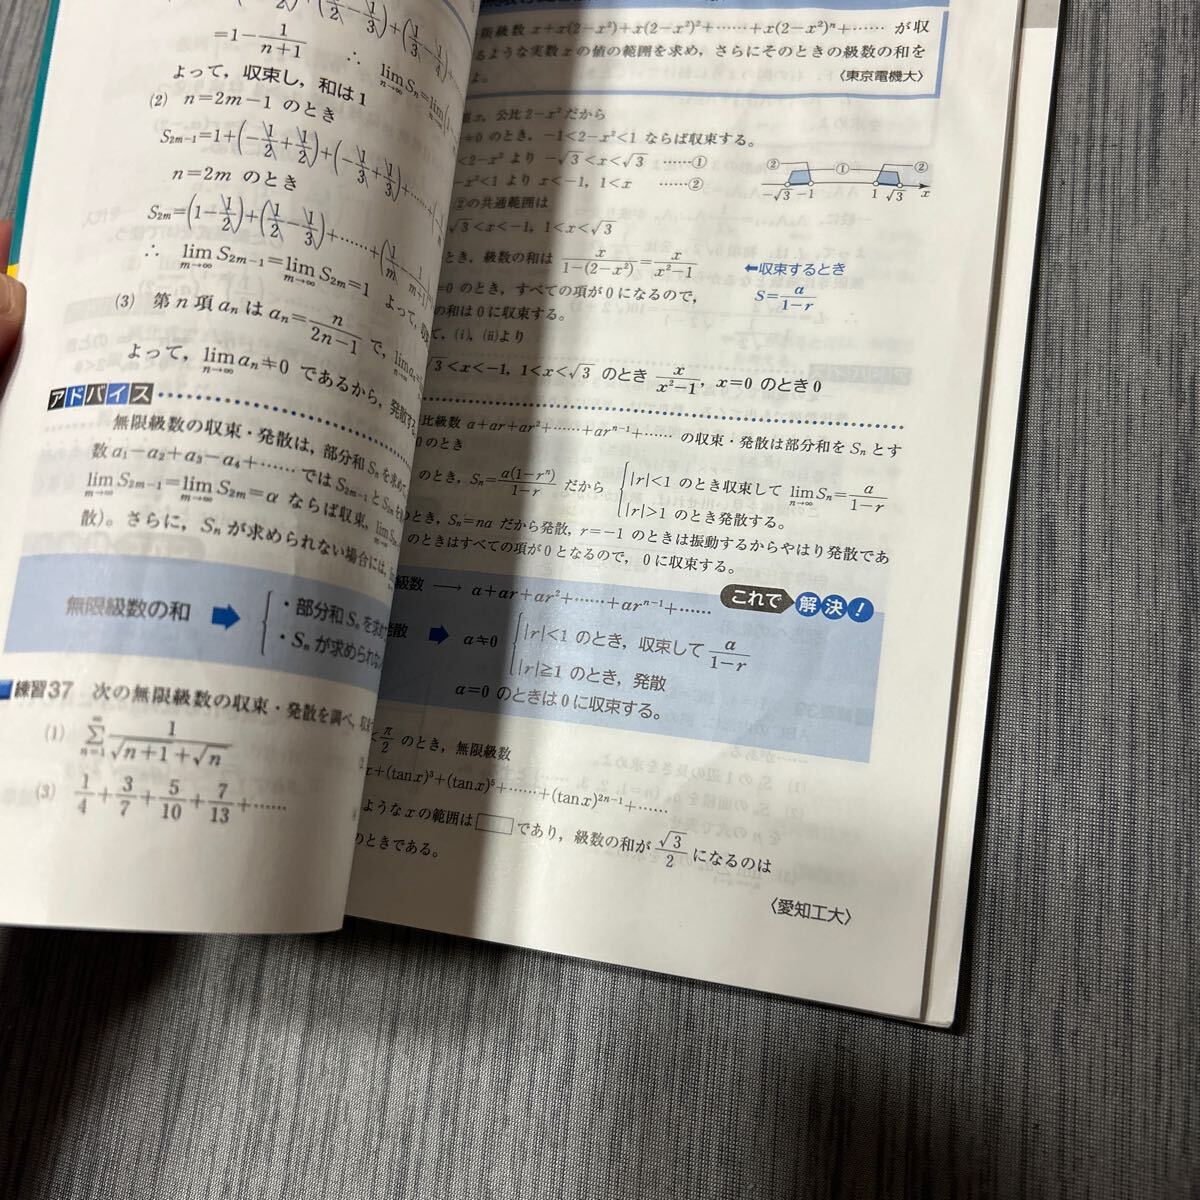 =1-1/(n+1) ∴ lim[n→∞] Sₙ=lim[n→∞]
よって，収束し，和は1
(2) n=2m-1 のとき
S₂ₘ₋₁=1+(-1/2+1/2)+(-1/3+1/3)+……+
n=2m のとき
S₂ₘ=(1-1/2)+(1/2-1/3)+……+(1/m-1/(m+1))
∴ lim[m→∞] S₂ₘ₋₁=lim[m→∞] S₂ₘ=1 よって，
(3) 第n項 aₙ は aₙ=n/(2n-1) で，lim[n→∞] aₙ=
よって，lim[n→∞] aₙ≠0 であるから，発散する
アドバイス
無限級数の収束・発散は，部分和 Sₙ を求めて
数 a₁-a₂+a₃-a₄+……では S₂ₘ₋₁ と S₂ₘ を
lim[m→∞] S₂ₘ₋₁=lim[m→∞] S₂ₘ=α ならば収束，lim
散)。さらに，Sₙ が求められない場合には，
無限級数の和 ➡
・部分和 Sₙ を求め
・Sₙ が求められな
練習37 次の無限級数の収束・発散を調べ，
(1) ∞Σn=1 1/(√(n+1)+√n)
(3) 1/4+3/7+5/10+7/13+……
限級数 x+x(2-x²)+x(2-x²)²+……+x(2-x²)ⁿ+…… が収
るような実数 x の値の範囲を求め，さらにそのときの級数の和を
よ。 〈東京電機大〉
x，公比 2-x² だから
≠0 のとき，-1<2-x²<1 ならば収束する。
<2-x² より -√3<x<√3 ……①
-x²<1 より x<-1，1<x ……②
② ① ②
-√3 -1 1 √3 x
②の共通範囲は
√3<x<-1，1<x<√3
とき，級数の和は x/(1-(2-x²))=x/(x²-1)
⬅収束するとき
S=a/(1-r)
=0 のとき，すべての項が0になるので，
の和は0に収束する。
て，(i)，(ii)より
√3<x<-1，1<x<√3 のとき x/(x²-1)，x=0 のとき 0
比級数 a+ar+ar²+……+arⁿ⁻¹+…… の収束・発散は部分和を Sₙ とす
0 のとき
のとき，Sₙ=a(1-rⁿ)/(1-r) だから
|r|<1 のとき収束して lim[n→∞] Sₙ=a/(1-r)
|r|>1 のとき発散する。
のとき，Sₙ=na だから発散，r=-1 のときは振動するからやはり発散であ
のときはすべての項が0となるので，0に収束する。
これで解決！
級数 ⟶ a+ar+ar²+……+arⁿ⁻¹+……
発散 ➡ a≠0
|r|<1 のとき，収束して a/(1-r)
|r|≧1 のとき，発散
a=0 のときは0に収束する。
<π/2 のとき，無限級数
x+(tan x)³+(tan x)⁵+……+(tan x)²ⁿ⁻¹+……
ような x の範囲は□であり，級数の和が √3/2 になるのは
のときである。
〈愛知工大〉